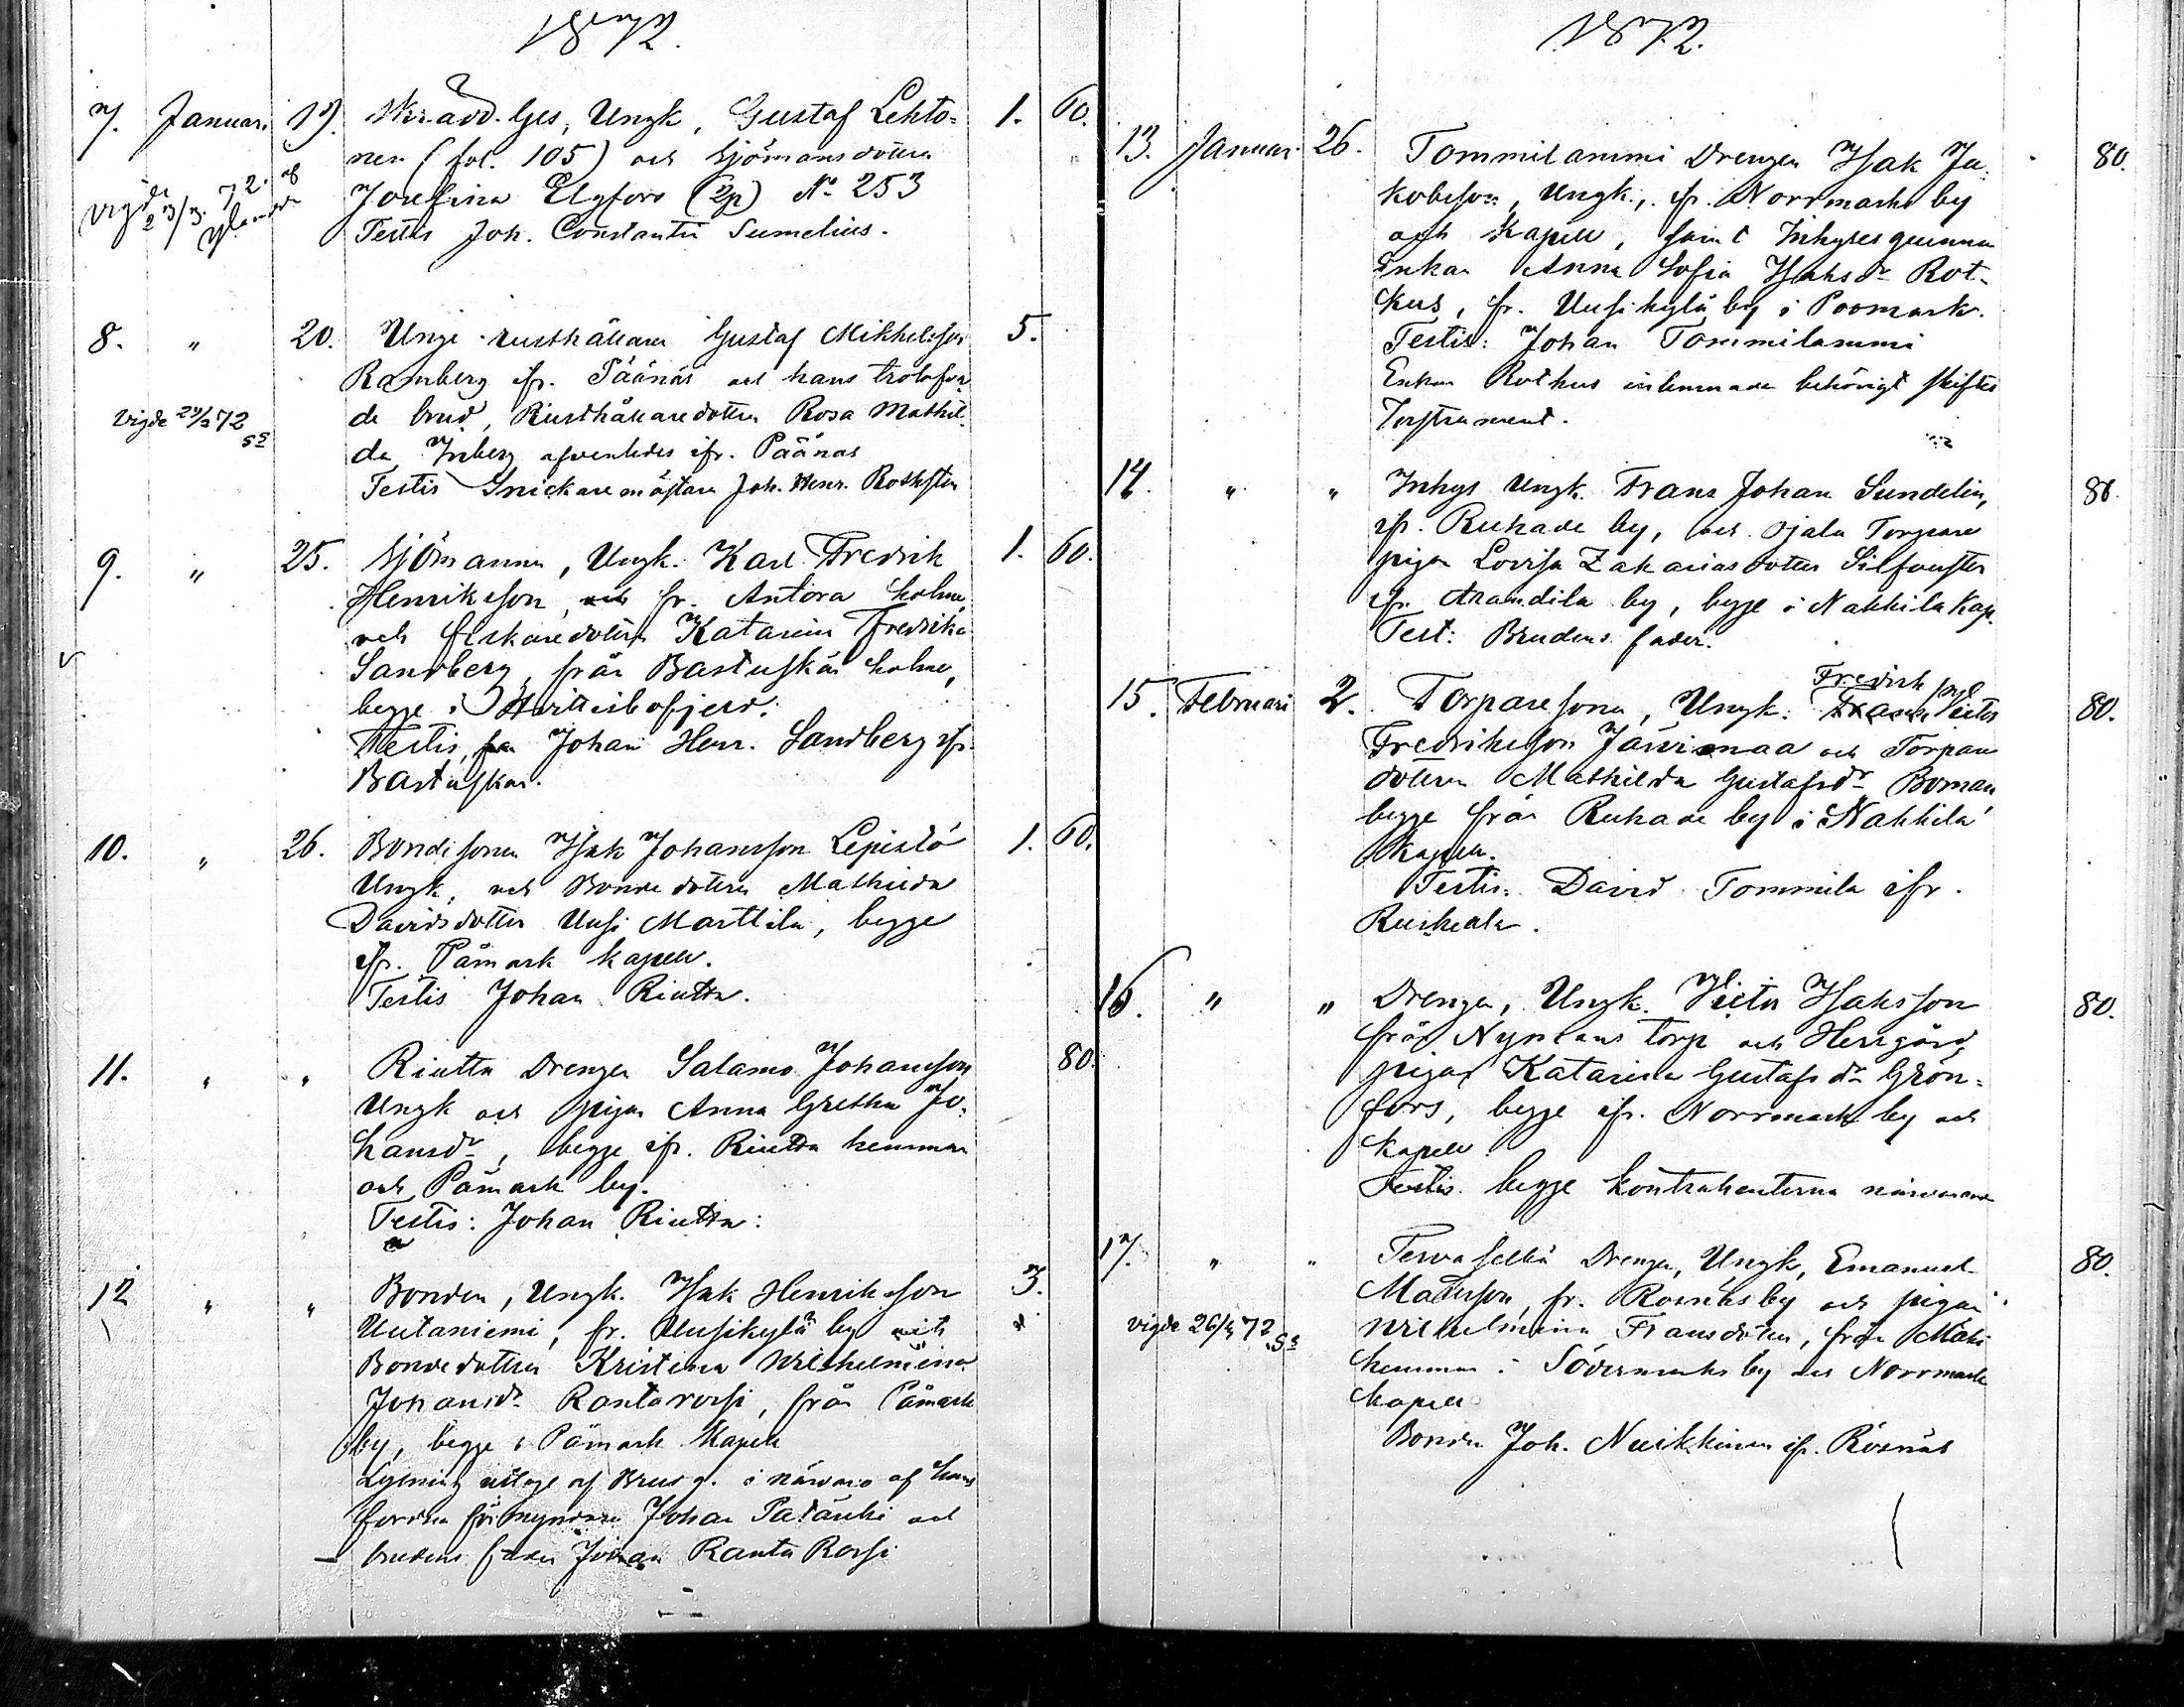 1872.
7. Januari 19. Skrädd. Ges, Ungk, Gustaf Lehto= 1. 60.
nen (fol. 105) och Sjömansdottern
vigde 23/3. 72. af Josefina Elgfors (2p) No 253
Testis Joh. Constantin Sumelius.
8. " 20. Unge rusthållaren Gustaf Mikkelsson 5.
Ramberg ifr. Päänäs och hans trolofva
vigde 29/2 72 de brud, Rusthållaredottern Rosa Mathil
da Inberg ifr. Päänäs
Testis Snickaremästare Joh. Henr. Rothsten
9. " 25. Sjömannen, Ungk. Karl Fredrik 1. 60.
Henriksson, och fr. Antora holme
och fiskaredottern Katarina Fredrika
Sandberg, från Bastuskär holme,
begge i Hvittisbofjerd.
Testis, Johan Henr. Sandberg ifr.
Bastuskär.
10. " 26. Bondesonen Isak Johansson Lepistö 1. 60.
Ungk, och Bondedottern Mathilda
Davidsdotter Uusi Marttila, begge
ifr. Påmark kapell.
Testis Johan Riutta.
11. " " Riutta Drengen Salamo Johansson 80.
Ungk och pigan Anna Gretha Jo-
hansdr, begge ifr. Riutta hemman
och Påmark by.
Testis: Johan Riutta:
12 " " Bonden, Ungk. Isak Henriksson 3.
Uutaniemi, fr. Uusikylä by och
Bondedottern Kristina Wilhelmina
Johansdr Rantarossi, från Påmark
by, begge i Påmark Kapell
Lysning uttogs af Brudg. i närvaro af hans
fordna förmyndare Johan och
brudens fader Johan Ranta Rossi
1872.
13. Januari 26. Tommilammi Drengen Isak Ja- 80.
kobsson, Ungk., fr. Norrmarks by
och Kapell, samt Inhyses qvinnan
Enkan Anna Sofia Isaksdr Rot-
kus, fr. Uusikylä by i Poomark.
Testis: Johan Tommilammi
Enkan Rotkus inlemnade behörigt skiftes
Instrument.
14. " " Inhys Ungk. Frans Johan Sundelin, 80.
ifr. Ruhade by, och Ojala Torpare
pigan Lovisa Zakariasdotter Silfversten
ifr. Anandila by, begge i Nakkila Kap.
Test: Brudens fader.
Fredrik
15. Februari 2. Torparesonen, Ungk. Frans Victor 80.
Fredriksson Järvimaa och Torpare
dottern Mathilda Gustafsdr Boman
begge från Ruhade by i Nakkila
Kapell.
Testis: David Tommila ifr.
Ruskeala.
16. " " Drengen, Ungk. Victor Isaksson 80.
från Nymans torp och Herrgårds
pigan Katarina Gustafsdr Grön=
fors, begge ifr. Norrmark by och
kapell
Testis. begge kontrahenterna närvarande
17. " " Tervaselkä Drengen, Ungk, Emanuel 80.
Matsson, fr. Rosnäs by och pigan
vigde 26/4 72 Wilhelmina Fransdotter, från Mäki
hemman i Södermarks by och Norrmark
kapell
Bonden Joh. Nuikkinen ifr. Rosnäs